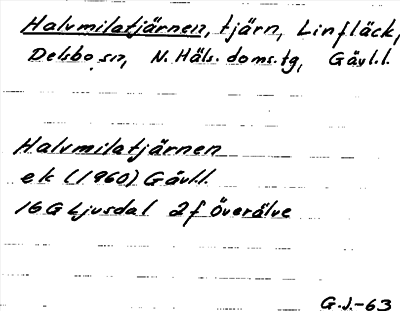 Halvmilatjärnen, tjärn, Linfläck,
Delsbo sn, N. Häls. doms.tg, Gävl.l.
Halvmilatjärnen
ek (1960) Gävl.l.
16G Ljusdal 2f Överälve
G.J.-63